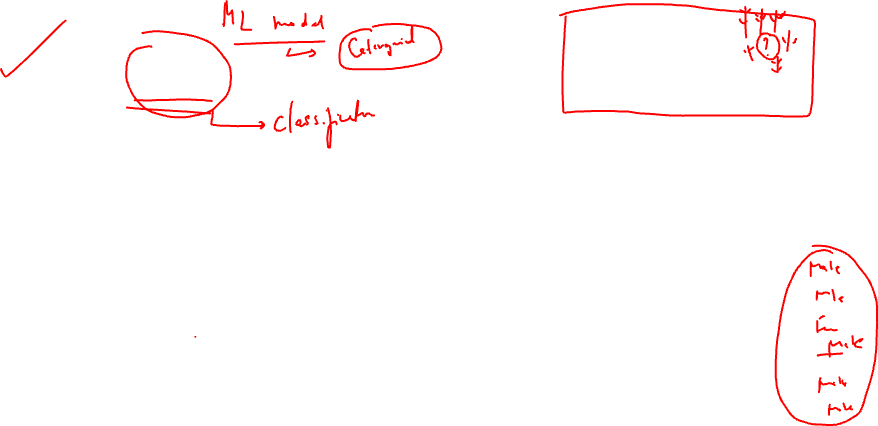 ML model
Categorical
Classification
?
male
male
Fem
male
male
male